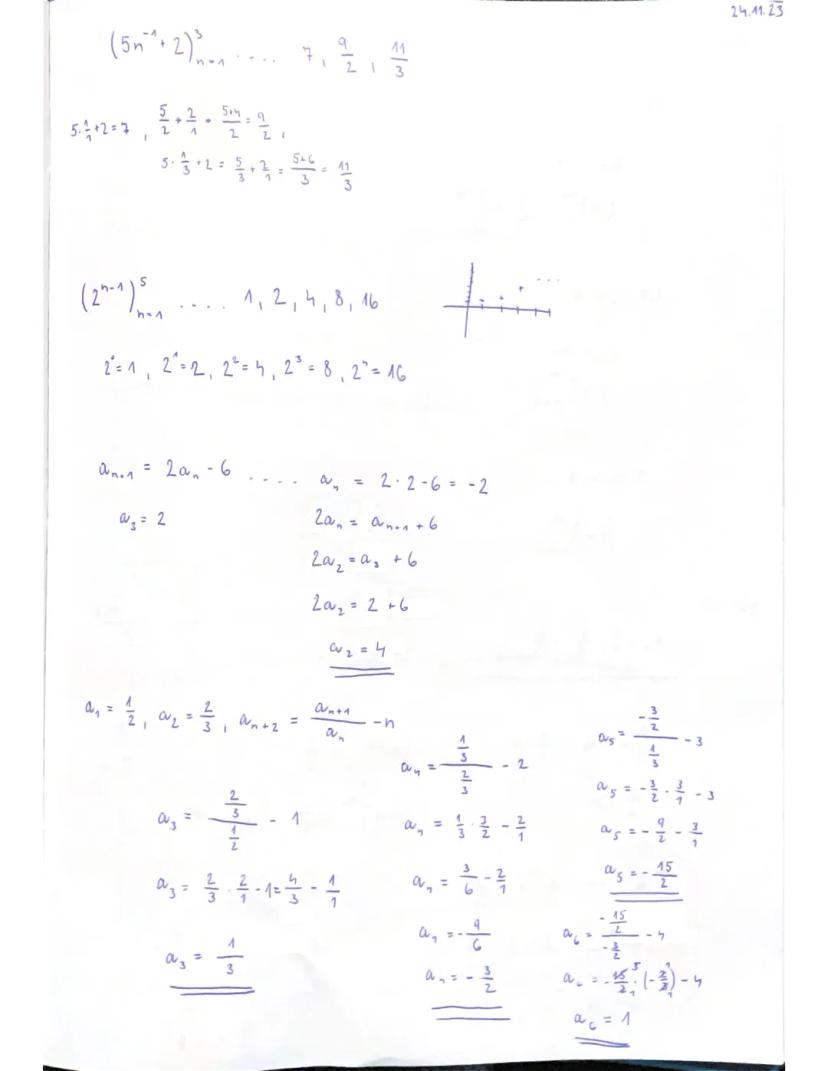 24.11.23
(5n⁻¹ + 2)³ₙ₌₁ .... 7, 9/2, 11/3
5·1/1+2=7, 5/2 + 2/1 = 5+4/2 = 9/2,
5·1/3+2 = 5/3 + 2/1 = 5+6/3 = 11/3
(2ⁿ⁻¹)⁵ₙ₌₁ .... 1, 2, 4, 8, 16
2⁰=1, 2¹=2, 2²=4, 2³=8, 2⁴=16
aₙ₊₁ = 2aₙ - 6 .... a₄ = 2·2-6 = -2
a₃ = 2
2aₙ = aₙ₊₁ + 6
2a₂ = a₃ + 6
2a₂ = 2 + 6
a₂ = 4
a₁ = 1/2, a₂ = 2/3, aₙ₊₂ = aₙ₊₁/aₙ - n
a₃ = (2/3)/(1/2) - 1
a₃ = 2/3 · 2/1 - 1 = 4/3 - 1/1
a₃ = 1/3
a₄ = (1/3)/(2/3) - 2
a₄ = 1/3 · 3/2 - 2/1
a₄ = 3/6 - 2/1
a₄ = -9/6
a₄ = -3/2
a₅ = (-3/2)/(1/3) - 3
a₅ = -3/2 · 3/1 - 3
a₅ = -9/2 - 3/1
a₅ = -15/2
a₆ = (-15/2)/(-3/2) - 4
a₆ = -15/2 · (-2/3) - 4
a₆ = 1